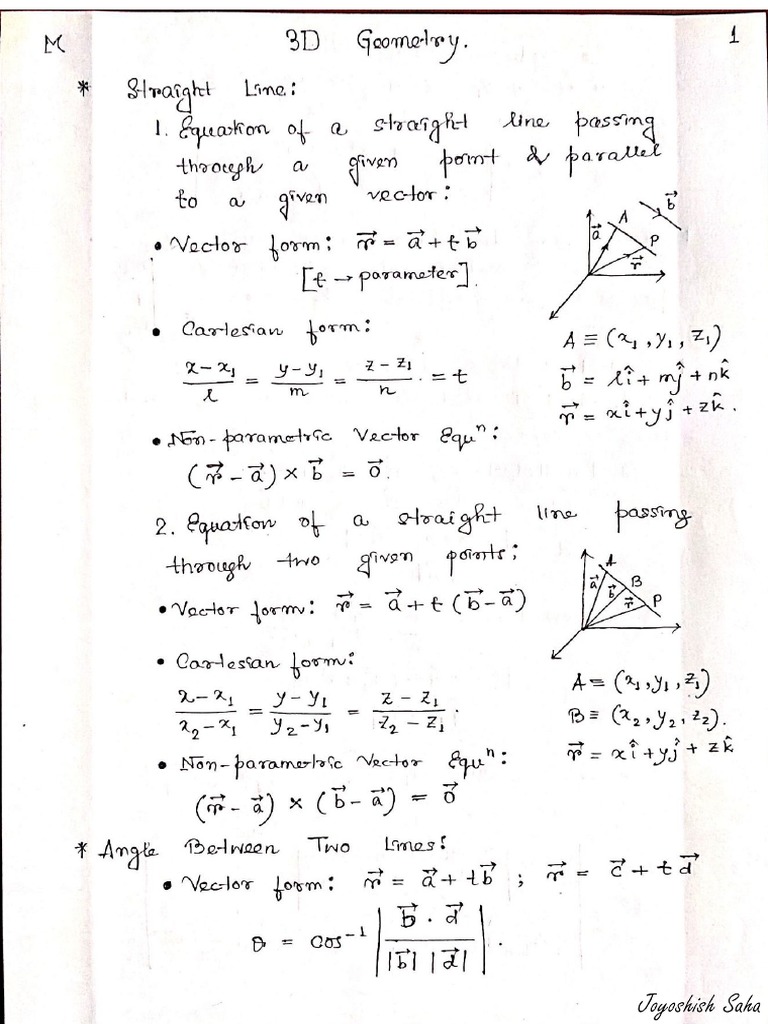 M 3D Geometry. 1
* Straight Line:
1. Equation of a straight line passing
through a given point & parallel
to a given vector:
• Vector form: r⃗ = a⃗ + t b⃗
[t → parameter].
a⃗ A b⃗ P r⃗
• Cartesian form:
(x-x₁)/l = (y-y₁)/m = (z-z₁)/n = t
A ≡ (x₁, y₁, z₁)
b⃗ = lî + mĵ + nk̂
r⃗ = xî + yĵ + zk̂.
• Non-parametric Vector Equⁿ:
(r⃗ - a⃗) × b⃗ = 0⃗.
2. Equation of a straight line passing
through two given points:
• Vector form: r⃗ = a⃗ + t (b⃗ - a⃗)
A a⃗ B b⃗ r⃗ P
• Cartesian form:
(x-x₁)/(x₂-x₁) = (y-y₁)/(y₂-y₁) = (z-z₁)/(z₂-z₁).
A ≡ (x₁, y₁, z₁)
B ≡ (x₂, y₂, z₂).
r⃗ = xî + yĵ + zk̂
• Non-parametric Vector Equⁿ:
(r⃗ - a⃗) × (b⃗ - a⃗) = 0⃗
* Angle Between Two Lines:
• Vector form: r⃗ = a⃗ + t b⃗ ; r⃗ = c⃗ + t d⃗
θ = cos⁻¹ | (b⃗ . d⃗)/(|b⃗| |d⃗|) |.
Joyoshish Saha